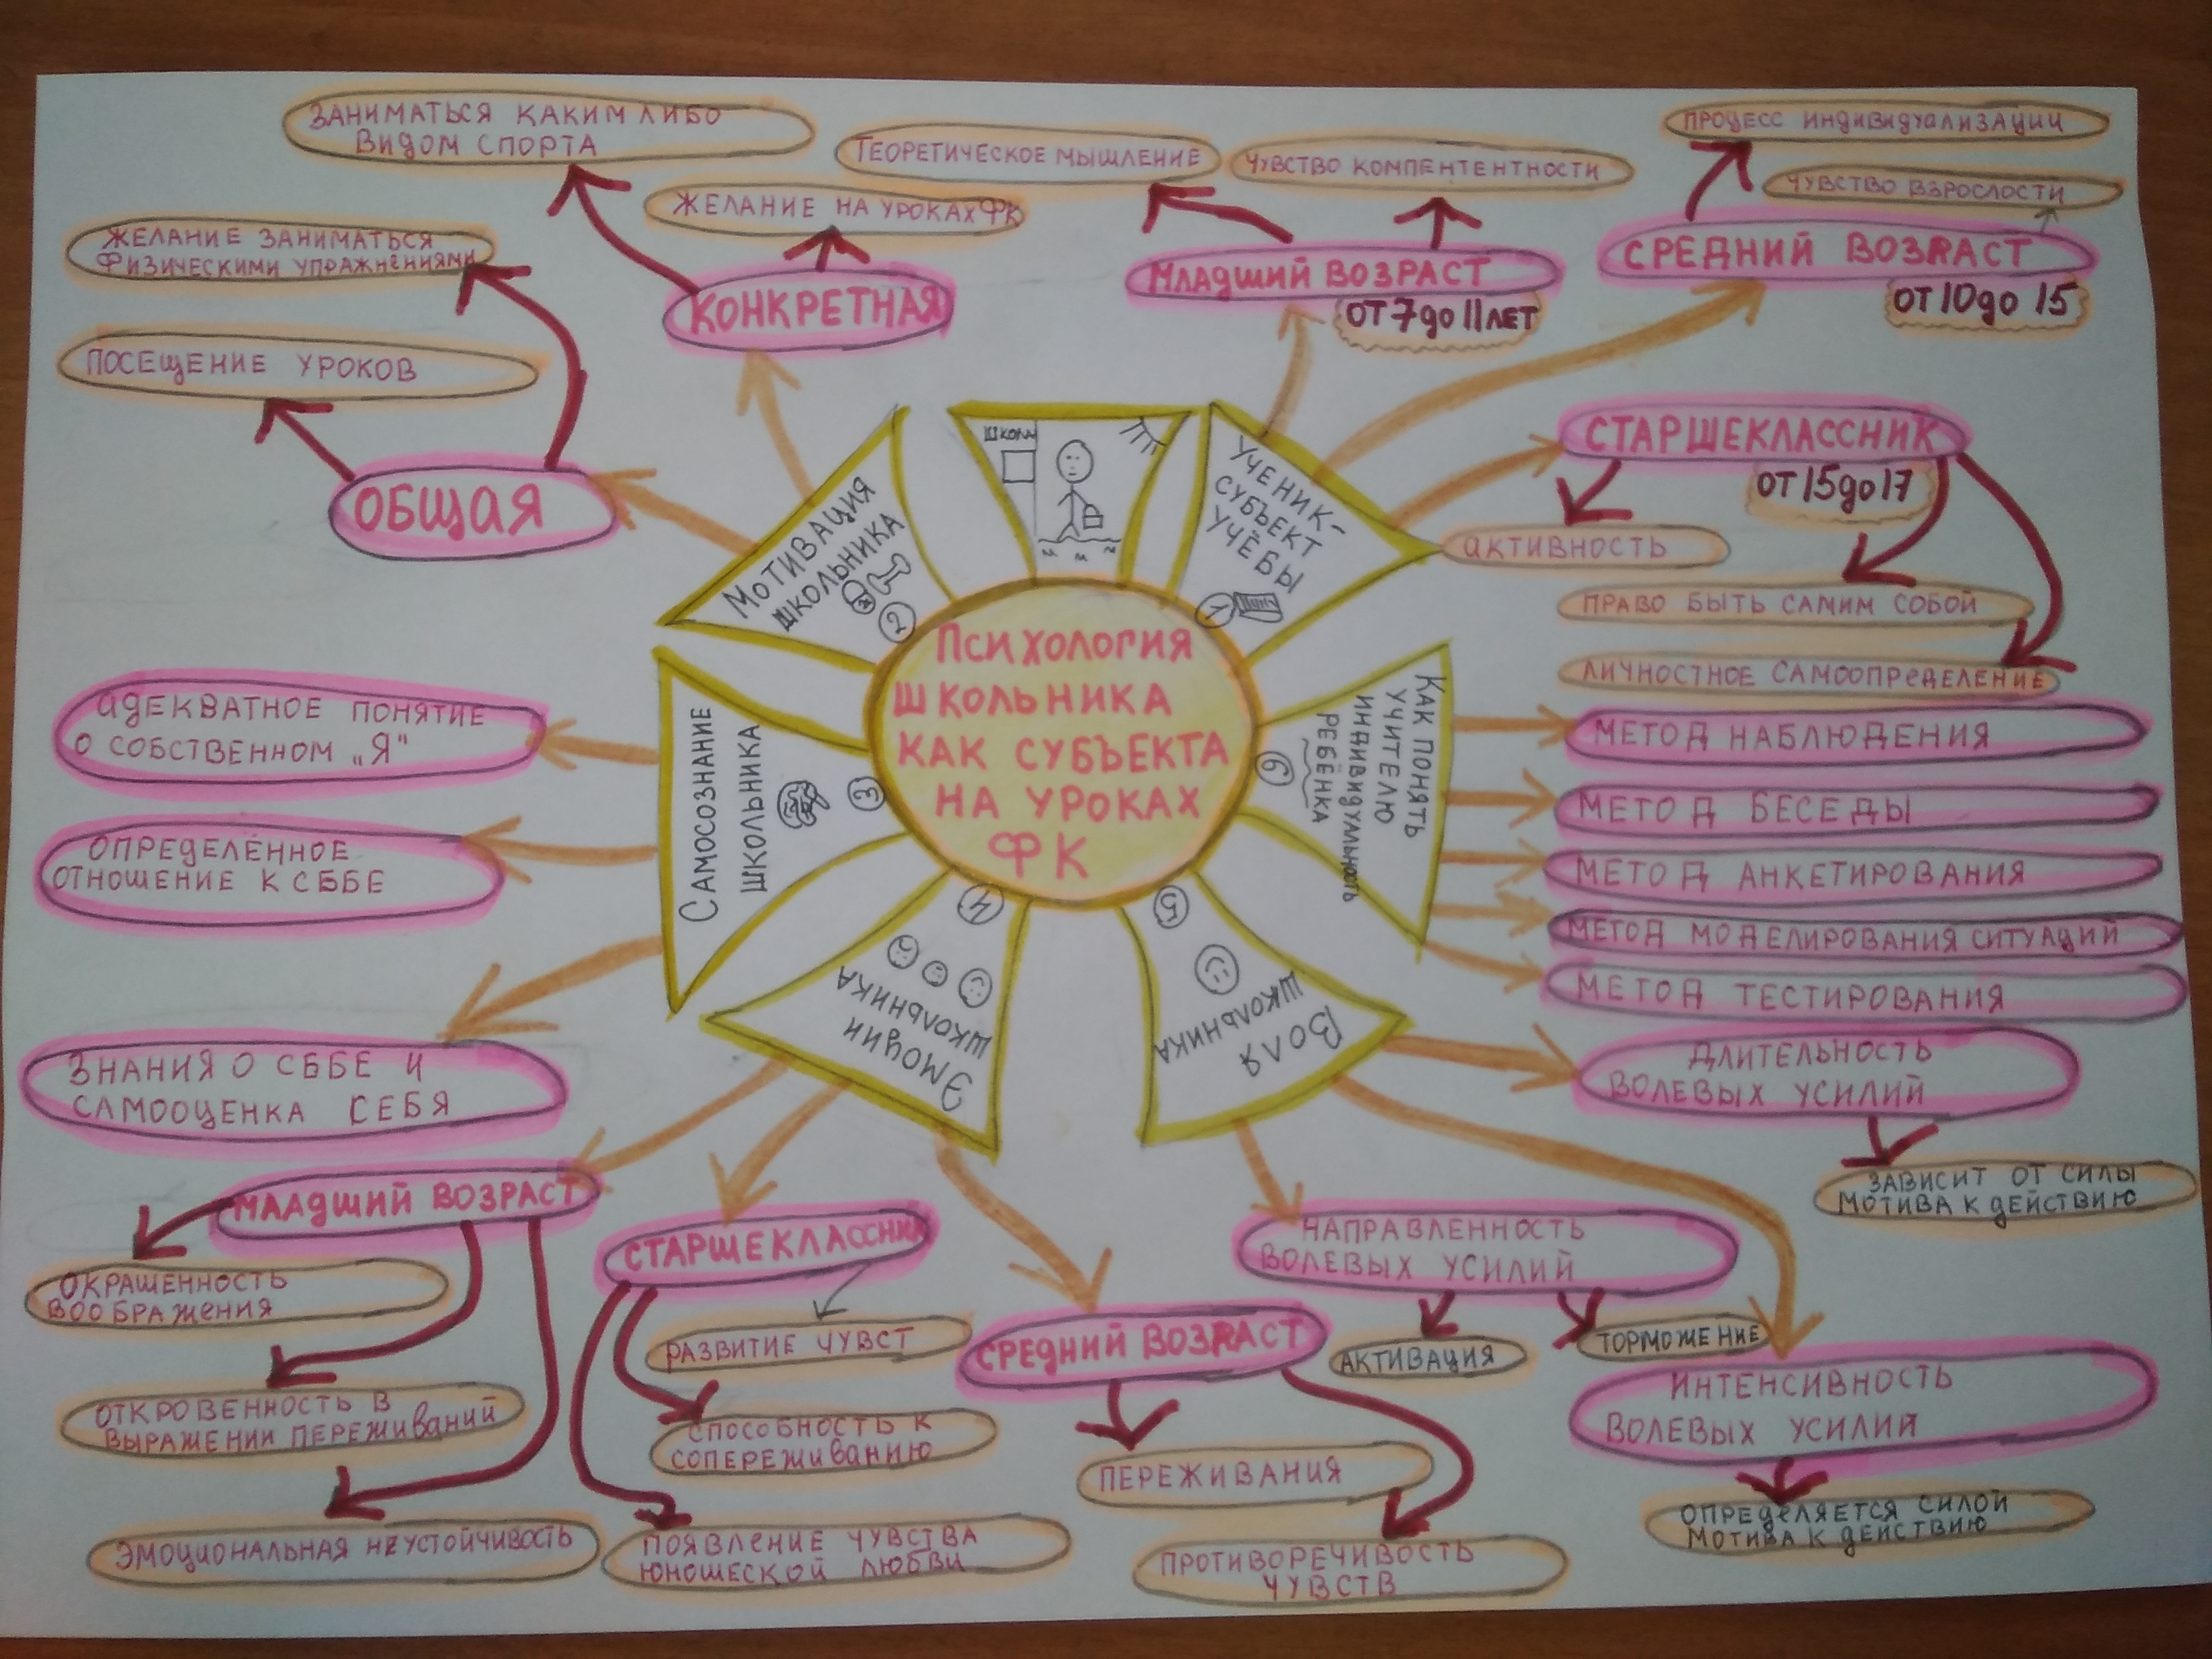 ПСИХОЛОГИЯ
ШКОЛЬНИКА
КАК СУБЪЕКТА
НА УРОКАХ
ФК
ШКОЛА
УЧЕНИК-
СУБЪЕКТ
УЧЁБЫ
1
МЛАДШИЙ ВОЗРАСТ
ОТ 7 ДО 11 ЛЕТ
ТЕОРЕТИЧЕСКОЕ МЫШЛЕНИЕ
ЧУВСТВО КОМПЕНТЕНТНОСТИ
СРЕДНИЙ ВОЗРАСТ
ОТ 10 ДО 15
ПРОЦЕСС ИНДИВИДУАЛИЗАЦИИ
ЧУВСТВО ВЗРОСЛОСТИ
СТАРШЕКЛАССНИК
ОТ 15 ДО 17
АКТИВНОСТЬ
ПРАВО БЫТЬ САМИМ СОБОЙ
ЛИЧНОСТНОЕ САМООПРЕДЕЛЕНИЕ
МОТИВАЦИЯ
ШКОЛЬНИКА
2
КОНКРЕТНАЯ
ЗАНИМАТЬСЯ КАКИМ ЛИБО
ВИДОМ СПОРТА
ЖЕЛАНИЕ НА УРОКАХ ФК
ОБЩАЯ
ЖЕЛАНИЕ ЗАНИМАТЬСЯ
ФИЗИЧЕСКИМИ УПРАЖНЕНИЯМИ
ПОСЕЩЕНИЕ УРОКОВ
САМОСОЗНАНИЕ
ШКОЛЬНИКА
3
АДЕКВАТНОЕ ПОНЯТИЕ
О СОБСТВЕННОМ „Я"
ОПРЕДЕЛЁННОЕ
ОТНОШЕНИЕ К СЕБЕ
ЗНАНИЯ О СЕБЕ И
САМООЦЕНКА СЕБЯ
ЭМОЦИИ
ШКОЛЬНИКА
4
МЛАДШИЙ ВОЗРАСТ
ОКРАШЕННОСТЬ
ВООБРАЖЕНИЯ
ОТКРОВЕННОСТЬ В
ВЫРАЖЕНИИ ПЕРЕЖИВАНИЙ
ЭМОЦИОНАЛЬНАЯ НЕУСТОЙЧИВОСТЬ
СТАРШЕКЛАССНИК
РАЗВИТИЕ ЧУВСТ
СПОСОБНОСТЬ К
СОПЕРЕЖИВАНИЮ
ПОЯВЛЕНИЕ ЧУВСТВА
ЮНОШЕСКОЙ ЛЮБВИ
СРЕДНИЙ ВОЗРАСТ
ПЕРЕЖИВАНИЯ
ПРОТИВОРЕЧИВОСТЬ
ЧУВСТВ
ВОЛЯ
ШКОЛЬНИКА
5
НАПРАВЛЕННОСТЬ
ВОЛЕВЫХ УСИЛИЙ
АКТИВАЦИЯ
ТОРМОЖЕНИЕ
ИНТЕНСИВНОСТЬ
ВОЛЕВЫХ УСИЛИЙ
ОПРЕДЕЛЯЕТСЯ СИЛОЙ
МОТИВА К ДЕЙСТВИЮ
ДЛИТЕЛЬНОСТЬ
ВОЛЕВЫХ УСИЛИЙ
ЗАВИСИТ ОТ СИЛЫ
МОТИВА К ДЕЙСТВИЮ
КАК ПОНЯТЬ
УЧИТЕЛЮ
ИНДИВИДУАЛЬНОСТЬ
РЕБЁНКА
6
МЕТОД НАБЛЮДЕНИЯ
МЕТОД БЕСЕДЫ
МЕТОД АНКЕТИРОВАНИЯ
МЕТОД МОДЕЛИРОВАНИЯ СИТУАЦИЙ
МЕТОД ТЕСТИРОВАНИЯ